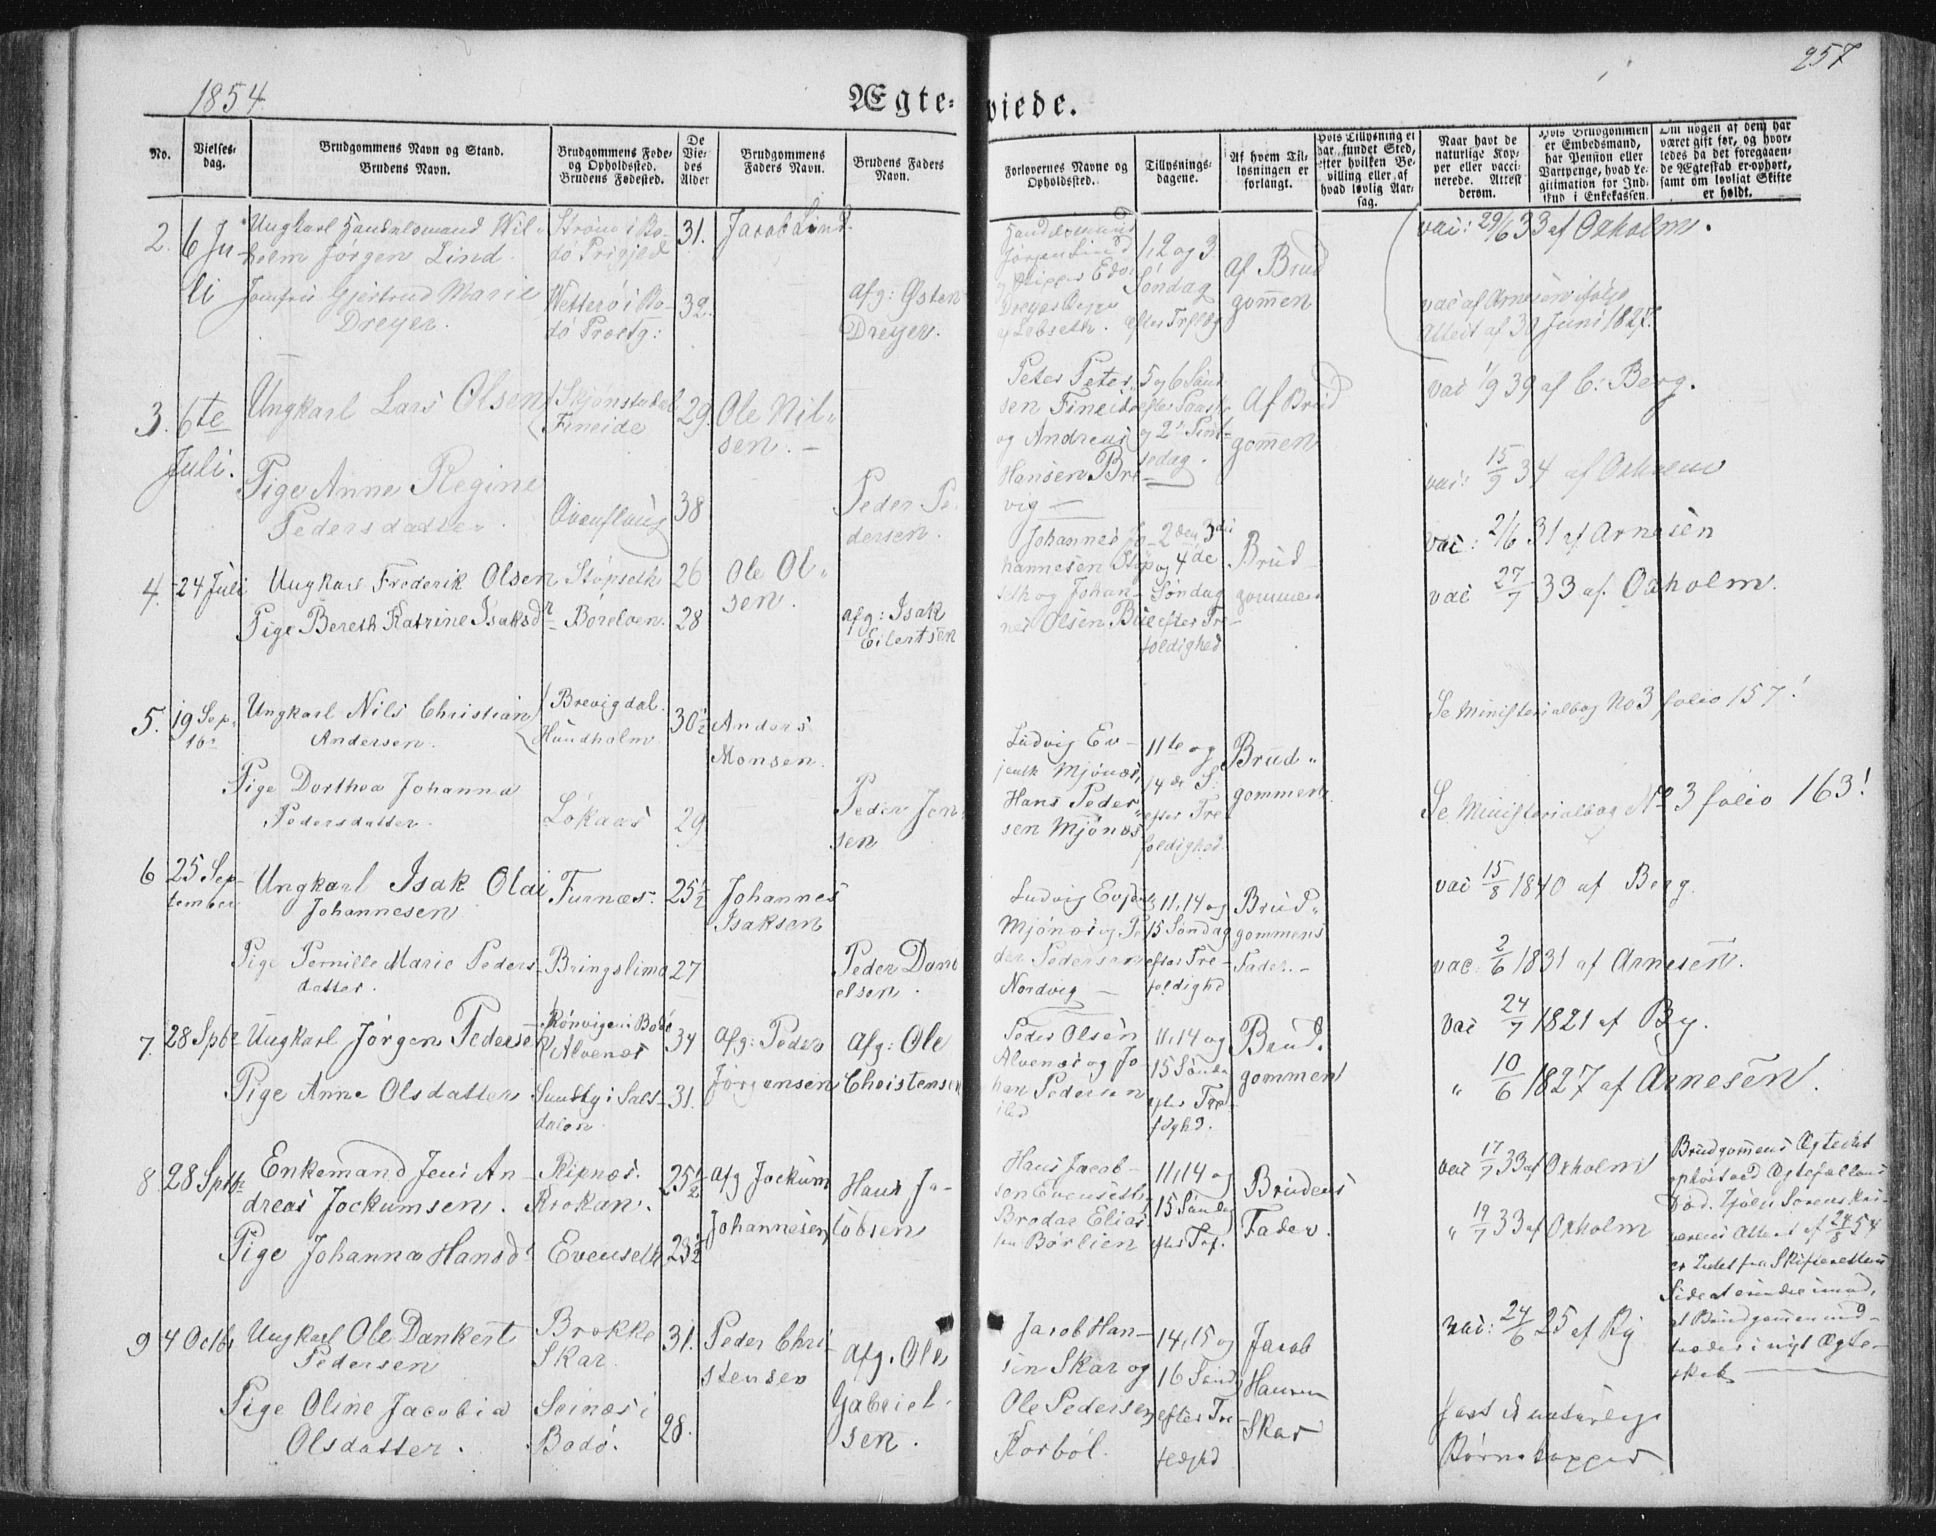 257
1854.
Ægte-viede.
No.
Vielses-dag.
Brudgommens Navn og Stand.
Brudens Navn.
Brudgommens Føde- og Opholdssted.
Brudens Fødested.
De Viedes Alder
Brudgommens Faders Navn.
Brudens Faders Navn.
Forlovernes Navne og Opholdssted.
Tillysnings-dagene.
Af hvem Tillysningen er forlangt.
Hvis Tillysning ei har fundet Sted, efter hvilken Bevilling eller af hvad lovlig Aarsag.
Naar havt de naturlige Kopper eller vaccinerede. Attest derom.
Hvis Brudgommen er Embedsmand, har Pension eller Vartpenge, hvad Legitimation for Indskud i Enkekassen.
Om nogen af dem har været gift før, og hvorledes da det foregaaende Ægteskab er ophørt, samt om lovligt Skifte er holdt.
2. 6 Juli
Ungkarl Handelsmand Wilhelm Jørgen Lind
Strøm i Bodø
31.
Jacob Lind.
Jomfru Gjertrud Marie Dreyer.
32.
afg: Østen Dreyer.
1, 2 og 3 Søndag
Af Brudgommen
vac: 29/6 33 af Oxholm.
vac af Arnesen ifølge Attest af 30 Juni 1827.
3. 6te Juli.
Ungkarl Lars Olsen
Skjønstadal
Fineide
29.
Ole Nilsen.
Pige Anne Regine Pedersdatter.
38
Peder Pedersen.
Peter Petersen Fineide og Andreas Hansen Brevig
Af Brudgommen
vac 1/9 39 af C: Berg.
vac: 15/9 34 af Oxholm
4. 24 Juli
Ungkarl Frederik Olsen
Støpseth
26
Ole Olsen.
Pige Bereth Katrine Isaksdr
Børelven.
28
afg: Isak Eilertsen
Johannes Johannesen Støpseth og Johannes Olsen
2den 3die og 4de Søndag efter Trefoldighed
Brudgommen
vac: 2/6 31 af Arnesen
vac 27/7 33 af. Oxholm.
5. 19 Sep.
Ungkarl Nils Christian Andersen.
Brevigdal.
Hundholm
30 1/2
Anders Monsen.
Pige Dorthea Johanna Pedersdatter.
Løkaas
29
Peder Jensen
Ludvig Evjenth Mjønes,
Hans Pedersen Mjønes
11te og 14de S. efter Trefoldighed.
Brudgommen.
Se Ministerialbog No 3 folio 157!
Se Ministerialbog No 3 folio 163!
6 25 September
Ungkarl Isak Olai Johannesen
Furnæs.
25 1/2
Johannes Isaksen
Pige Pernille Marie Pedersdatter.
Bringslimo
27
Peder Danielsen.
Ludvig Evjenth Mjønes og Peder Pedersen Nordvig
11, 14 og 15 Søndag efter Trefoldighd
Brudgommens Fader.
vac 15/8 1840 af Berg.
vac: 2/6 1831 af Arnesen.
7. 28 Spbr
Ungkarl Jørgen Pedersen
Rønvigen i Bodø
Alvenes
34
Afg: Peder Jørgensen
Pige Anne Olsdatter
Sundby i Saltdalen
31.
Afg: Ole Christensen
Peder Olsen Alvenes og Johan Pedersen
11, 14 og 15 Sønda efter Trefoghd.
Brudgommen
vac 24/7 1821 af By.
" 10/6 1827 af Arnesen.
8. 28 Sptbr
Enkemand Jens Andreas Jockumsen.
Ripnæs.
Krokan.
25 1/2
Afg Jockum Johannesen
Pige Johanna Hansdr
Evenseth
23 1/2
Hans Jacobsen
Hans Jacobsen Evenseth, Elias Børlien
11, 14 og 15 Sønda efter Tref.
Brudens Fader.
vac 17/7 33 af Oxholm
" 19/7 33 af Oxholm
Brudgomens Ægteskab ophørt ved Ægtefællens Død. Attest af 24/8 54 er Intet fra Skifterettens Side at erindre imod, at Brudgomen indtræder i nyt Ægteskab
9 4 Octbr
Ungkarl Ole Dankert Pedersen
Brokke
Skar.
31.
Peder Christensen
Pige Oline Jacobia Olsdatter.
Seinæs i Bodø.
28.
Afg. Ole Gabrielsen.
Jacob Hansen Skar og Ole Pedersen Kosbøl.
14, 15 og 16 Sønd efter Trefoghd
Jacob Hansen Skar
vac: 24/6 25 af By
havt de naturlige Børnekopper